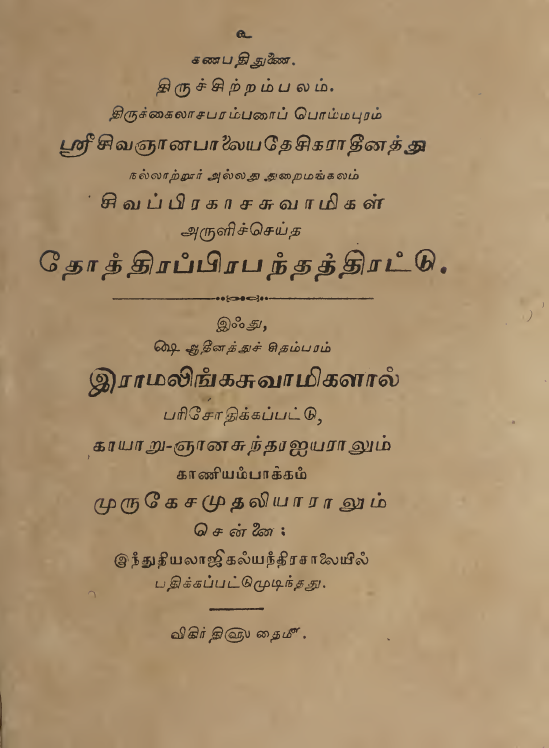 உ
கணபதிதுணை.
திருச்சிற்றம்பலம்.
திருக்கைலாசபரம்பரைப் பொம்மபுரம்
ஸ்ரீசிவஞானபாலையதேசிகராதீனத்து
நல்லாற்றூர் அல்லது துறைமங்கலம்
சிவப்பிரகாசசுவாமிகள்
அருளிச்செய்த
தோத்திரப்பிரபந்தத்திரட்டு.
இஃது,
௸ ஆதீனத்துச் சிதம்பரம்
இராமலிங்கசுவாமிகளால்
பரிசோதிக்கப்பட்டு,
காயாறு-ஞானசுந்தரஐயராலும்
காணியம்பாக்கம்
முருகேசமுதலியாராலும்
சென்னை:
இந்துதியலாஜிகல்யந்திரசாலையில்
பதிக்கப்பட்டுமுடிந்தது.
விகிர்தி௵ தை௴.